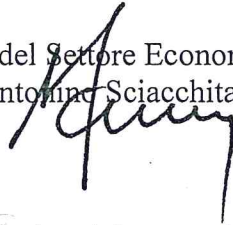 del Settore Econor
ntonino Sciacchita